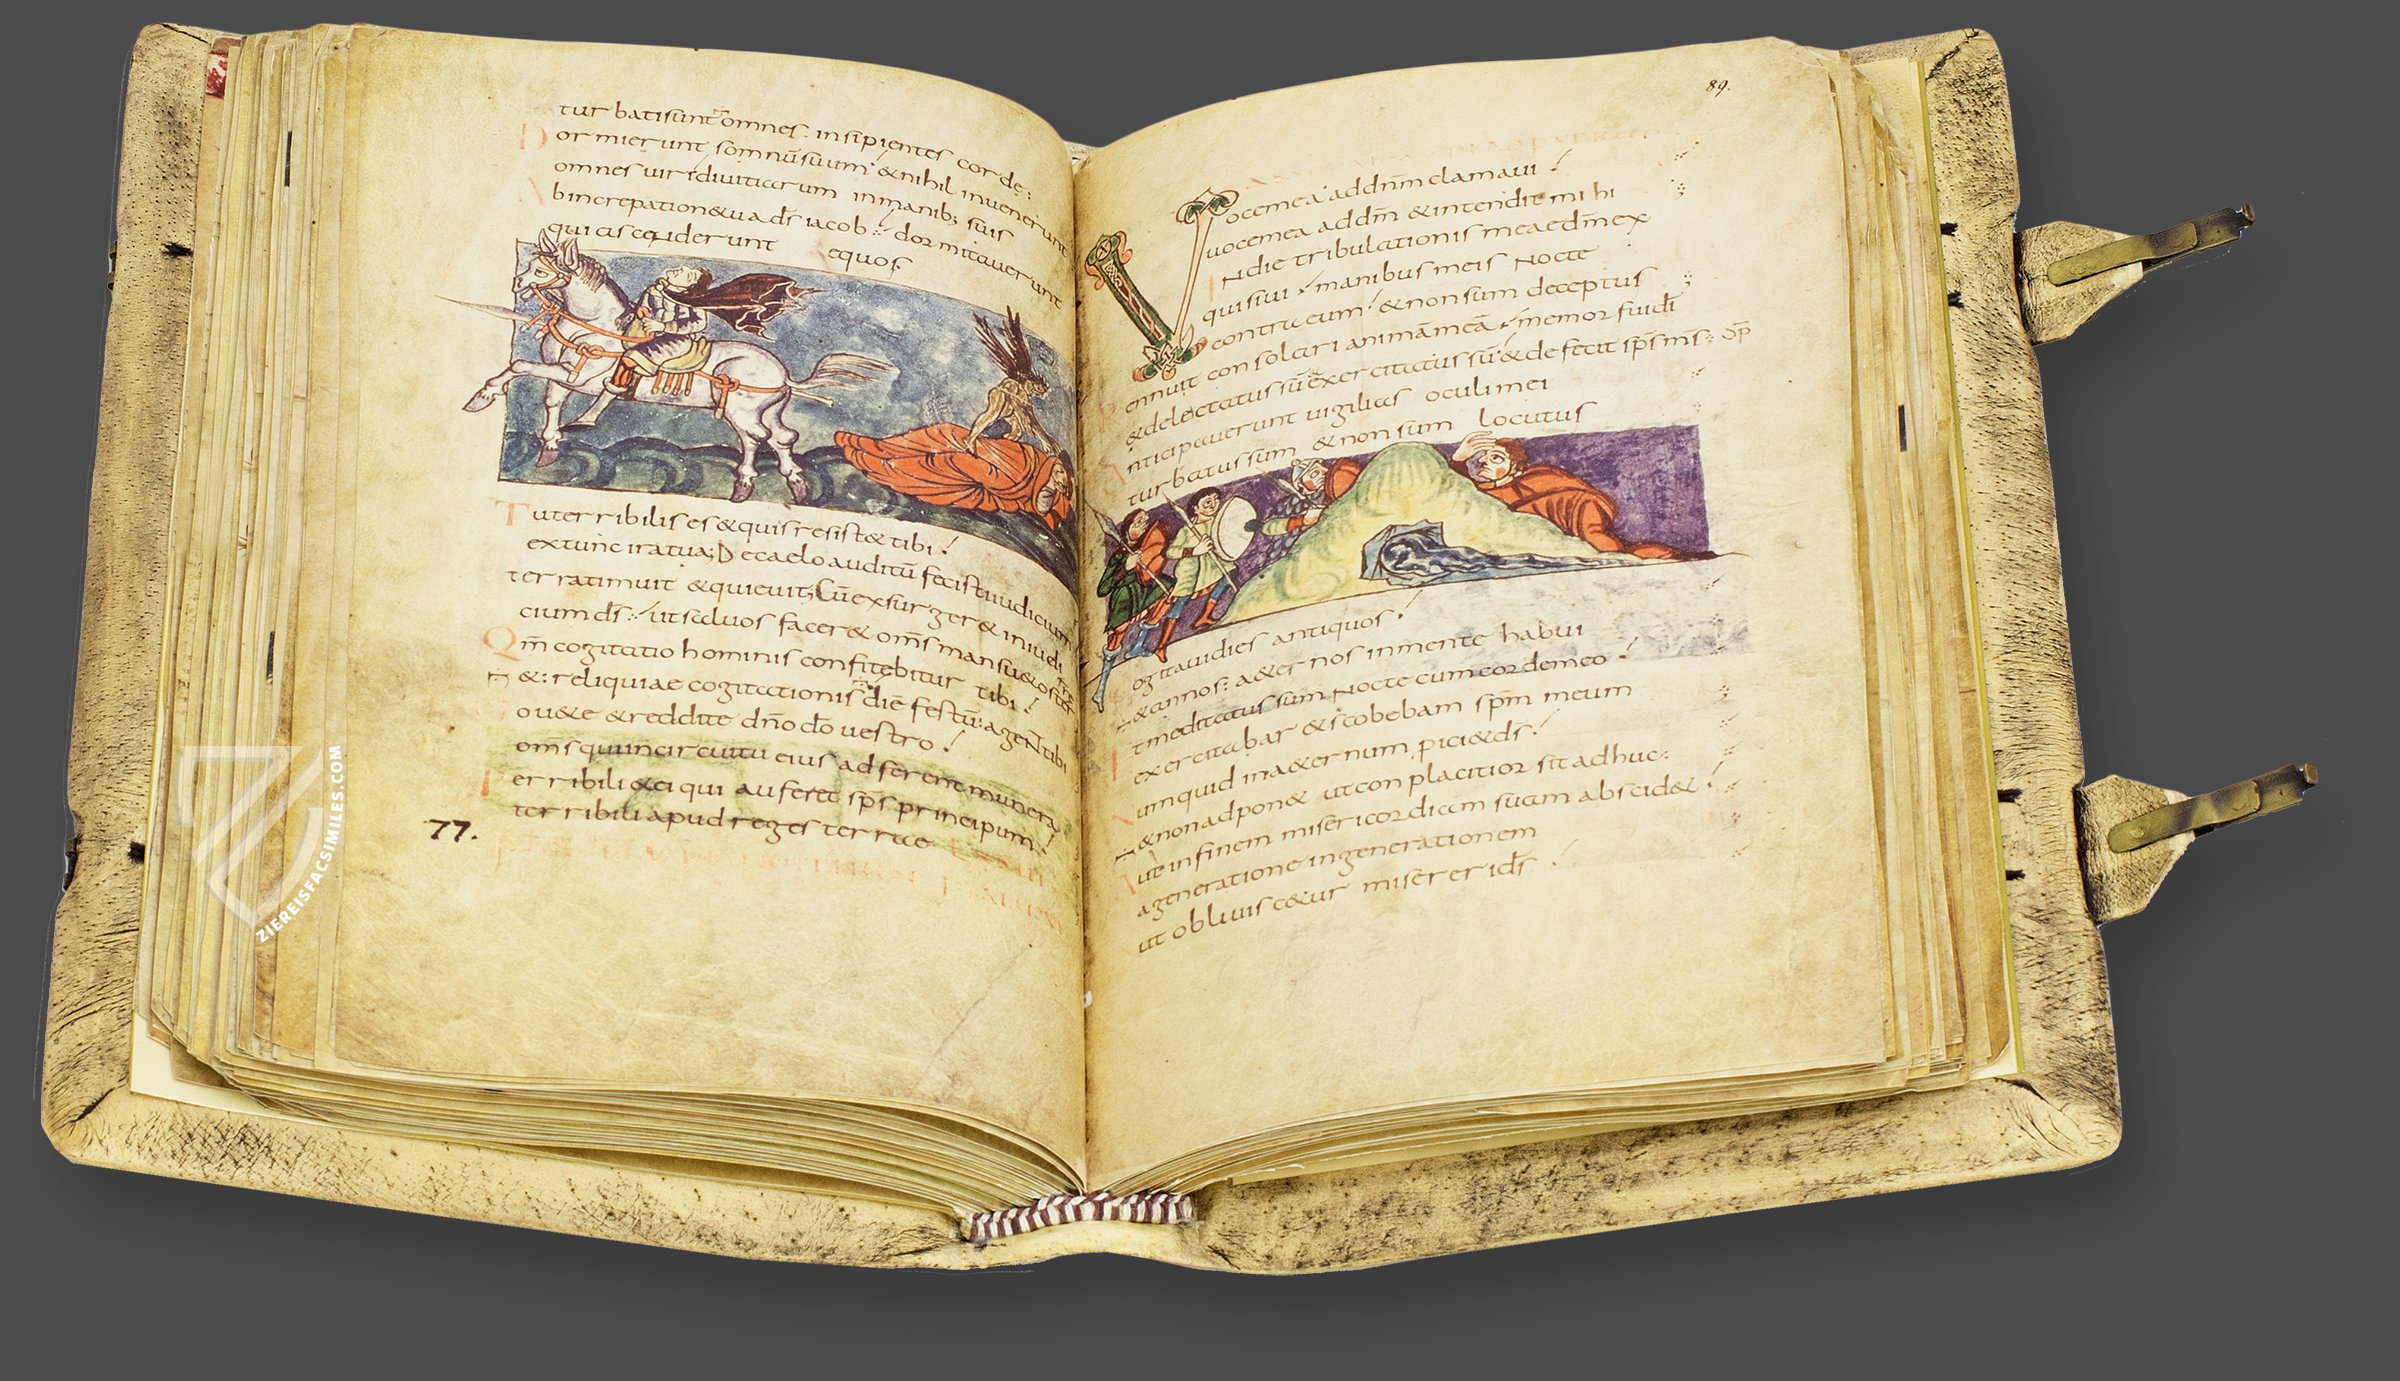 tur batisunt omnes: insipientes corde:
Dormierunt somnū suum &nihil invenerunt
omnes uiri diuitiarum inmanib; suis
Abincrepation&ua ds iacob: dormitauerunt
qui ascenderunt equos.
Tuterribilises &quisresist&tibi
extunc iratua; Decaelo auditū fecistiiudicium
terratimuit &quieuit; Cūexsurger& iniudi
ciumds: utsaluos facer& oms mansu&oster
Qm̄ cogitatio hominis confitebitur tibi
&: reliquiae cogitationis diē festū: agent tibi
ou&e &reddite dn̄o dō uestro
om̄s quiincircuitu eius adferent munera
Terribili &ei qui aufert sp̄s principum
terribili apud reges terrae
77.
ZIEREISFACSIMILES.COM
89.
Vocemea addn̄m clamaui
uocemea addn̄m &intendit mihi
Indie tribulationis meaedm̄ex
quisiui manibusmeis nocte
contra eum &nonsum deceptus
Rennuit consolari animāmeā memor fuidi
&delectatussū &exercitatussū &defecit sp̄sm̄s:
Anticipauerunt uigilias oculimei
turbatussum &nonsum locutus
Cogitauidies antiquos
&annos: a&ernos inmente habui
&meditatussum nocte cumcordemeo
exercitabar &scobebam sp̄m meum
Numquid ina&ernum piciet ds
&nonadpon& utconplacitior sitadhuc:
autinfinem misericordiam suam abscid&
ageneratione ingenerationem
aut obliuisc&ur misererids